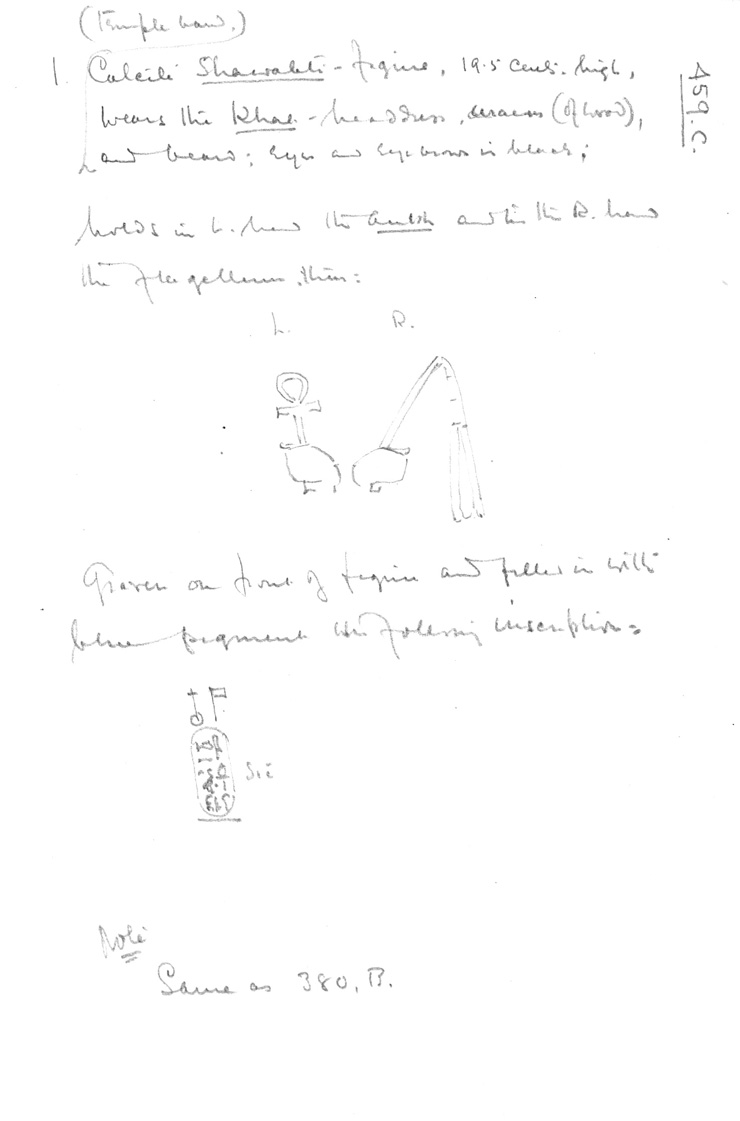 459.C.
(Temple hand.)
1. Calcite Shawabti-figure, 19.5 cents. high,
wears the Khat-headdress, uraeus (of wood),
and beard; eyes and eyebrows in black;
holds in L. hand the ankh and in the R. hand
the flagellum, thus:
L. R.
Graven on front of figure and filled in with
blue pigment the following inscription:
Sic
Note
Same as 380, B.